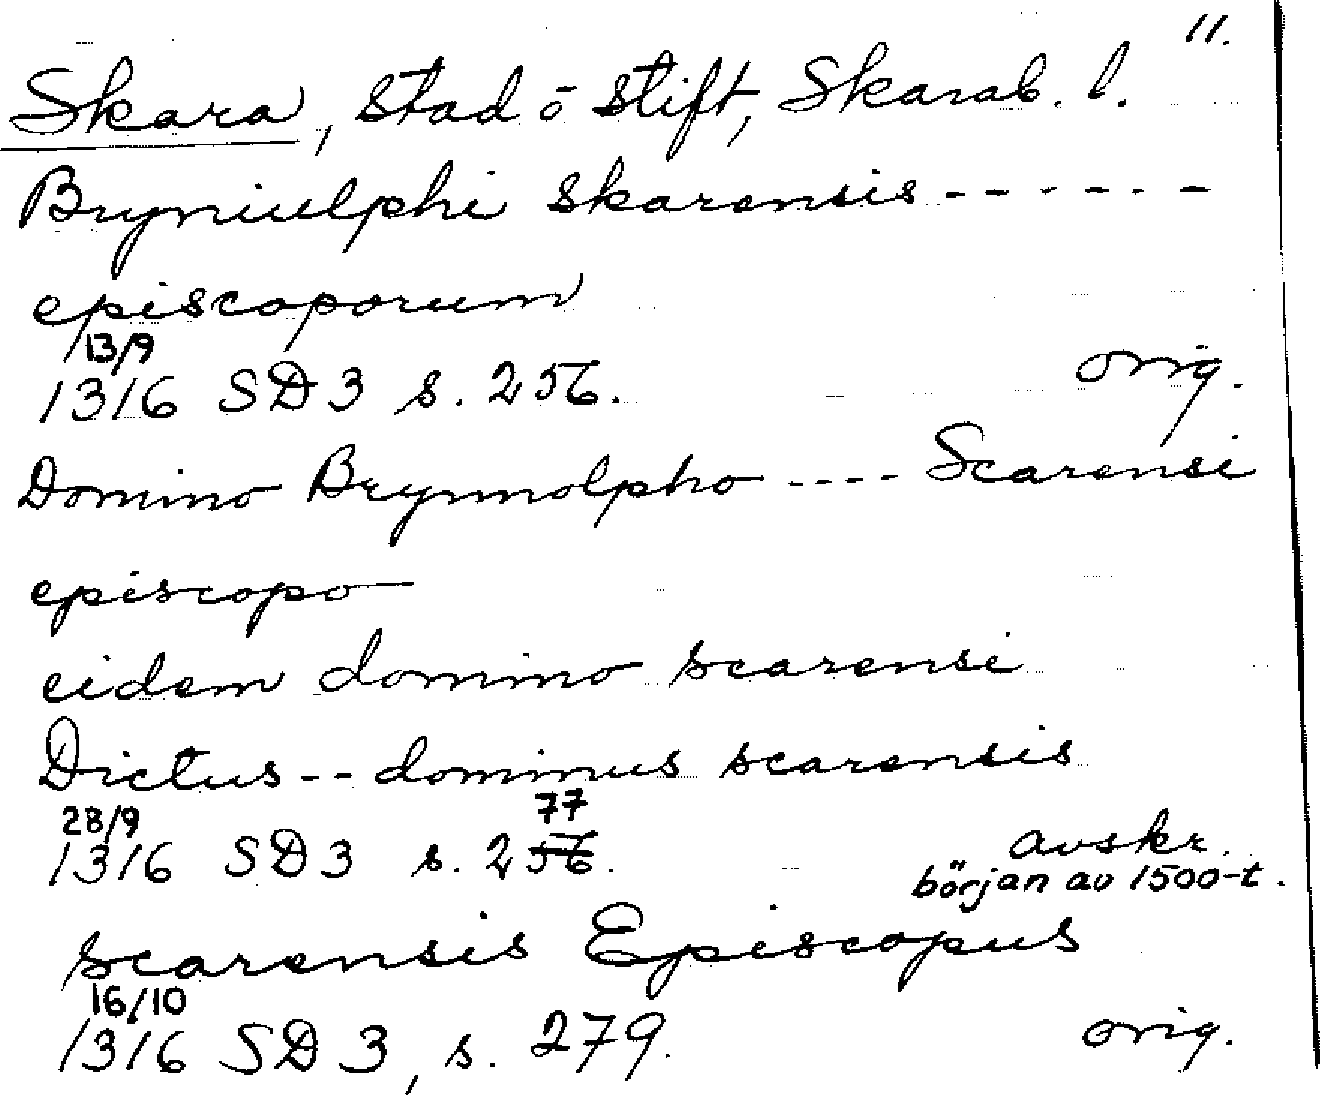 11.
Skara, stad o stift, Skarab. l.
Bryniulphi skarensis ------
episcoporum
13/9
1316 SD 3 s. 256. orig.
Domino Brynnolpho ---- Scarensi
episcopo
eidem domino scarensi
Dictus -- dominus scarensis
28/9 77
1316 SD 3 s. 256. avskr.
början av 1500-t.
scarensis Episcopus
16/10
1316 SD 3, s. 279. orig.